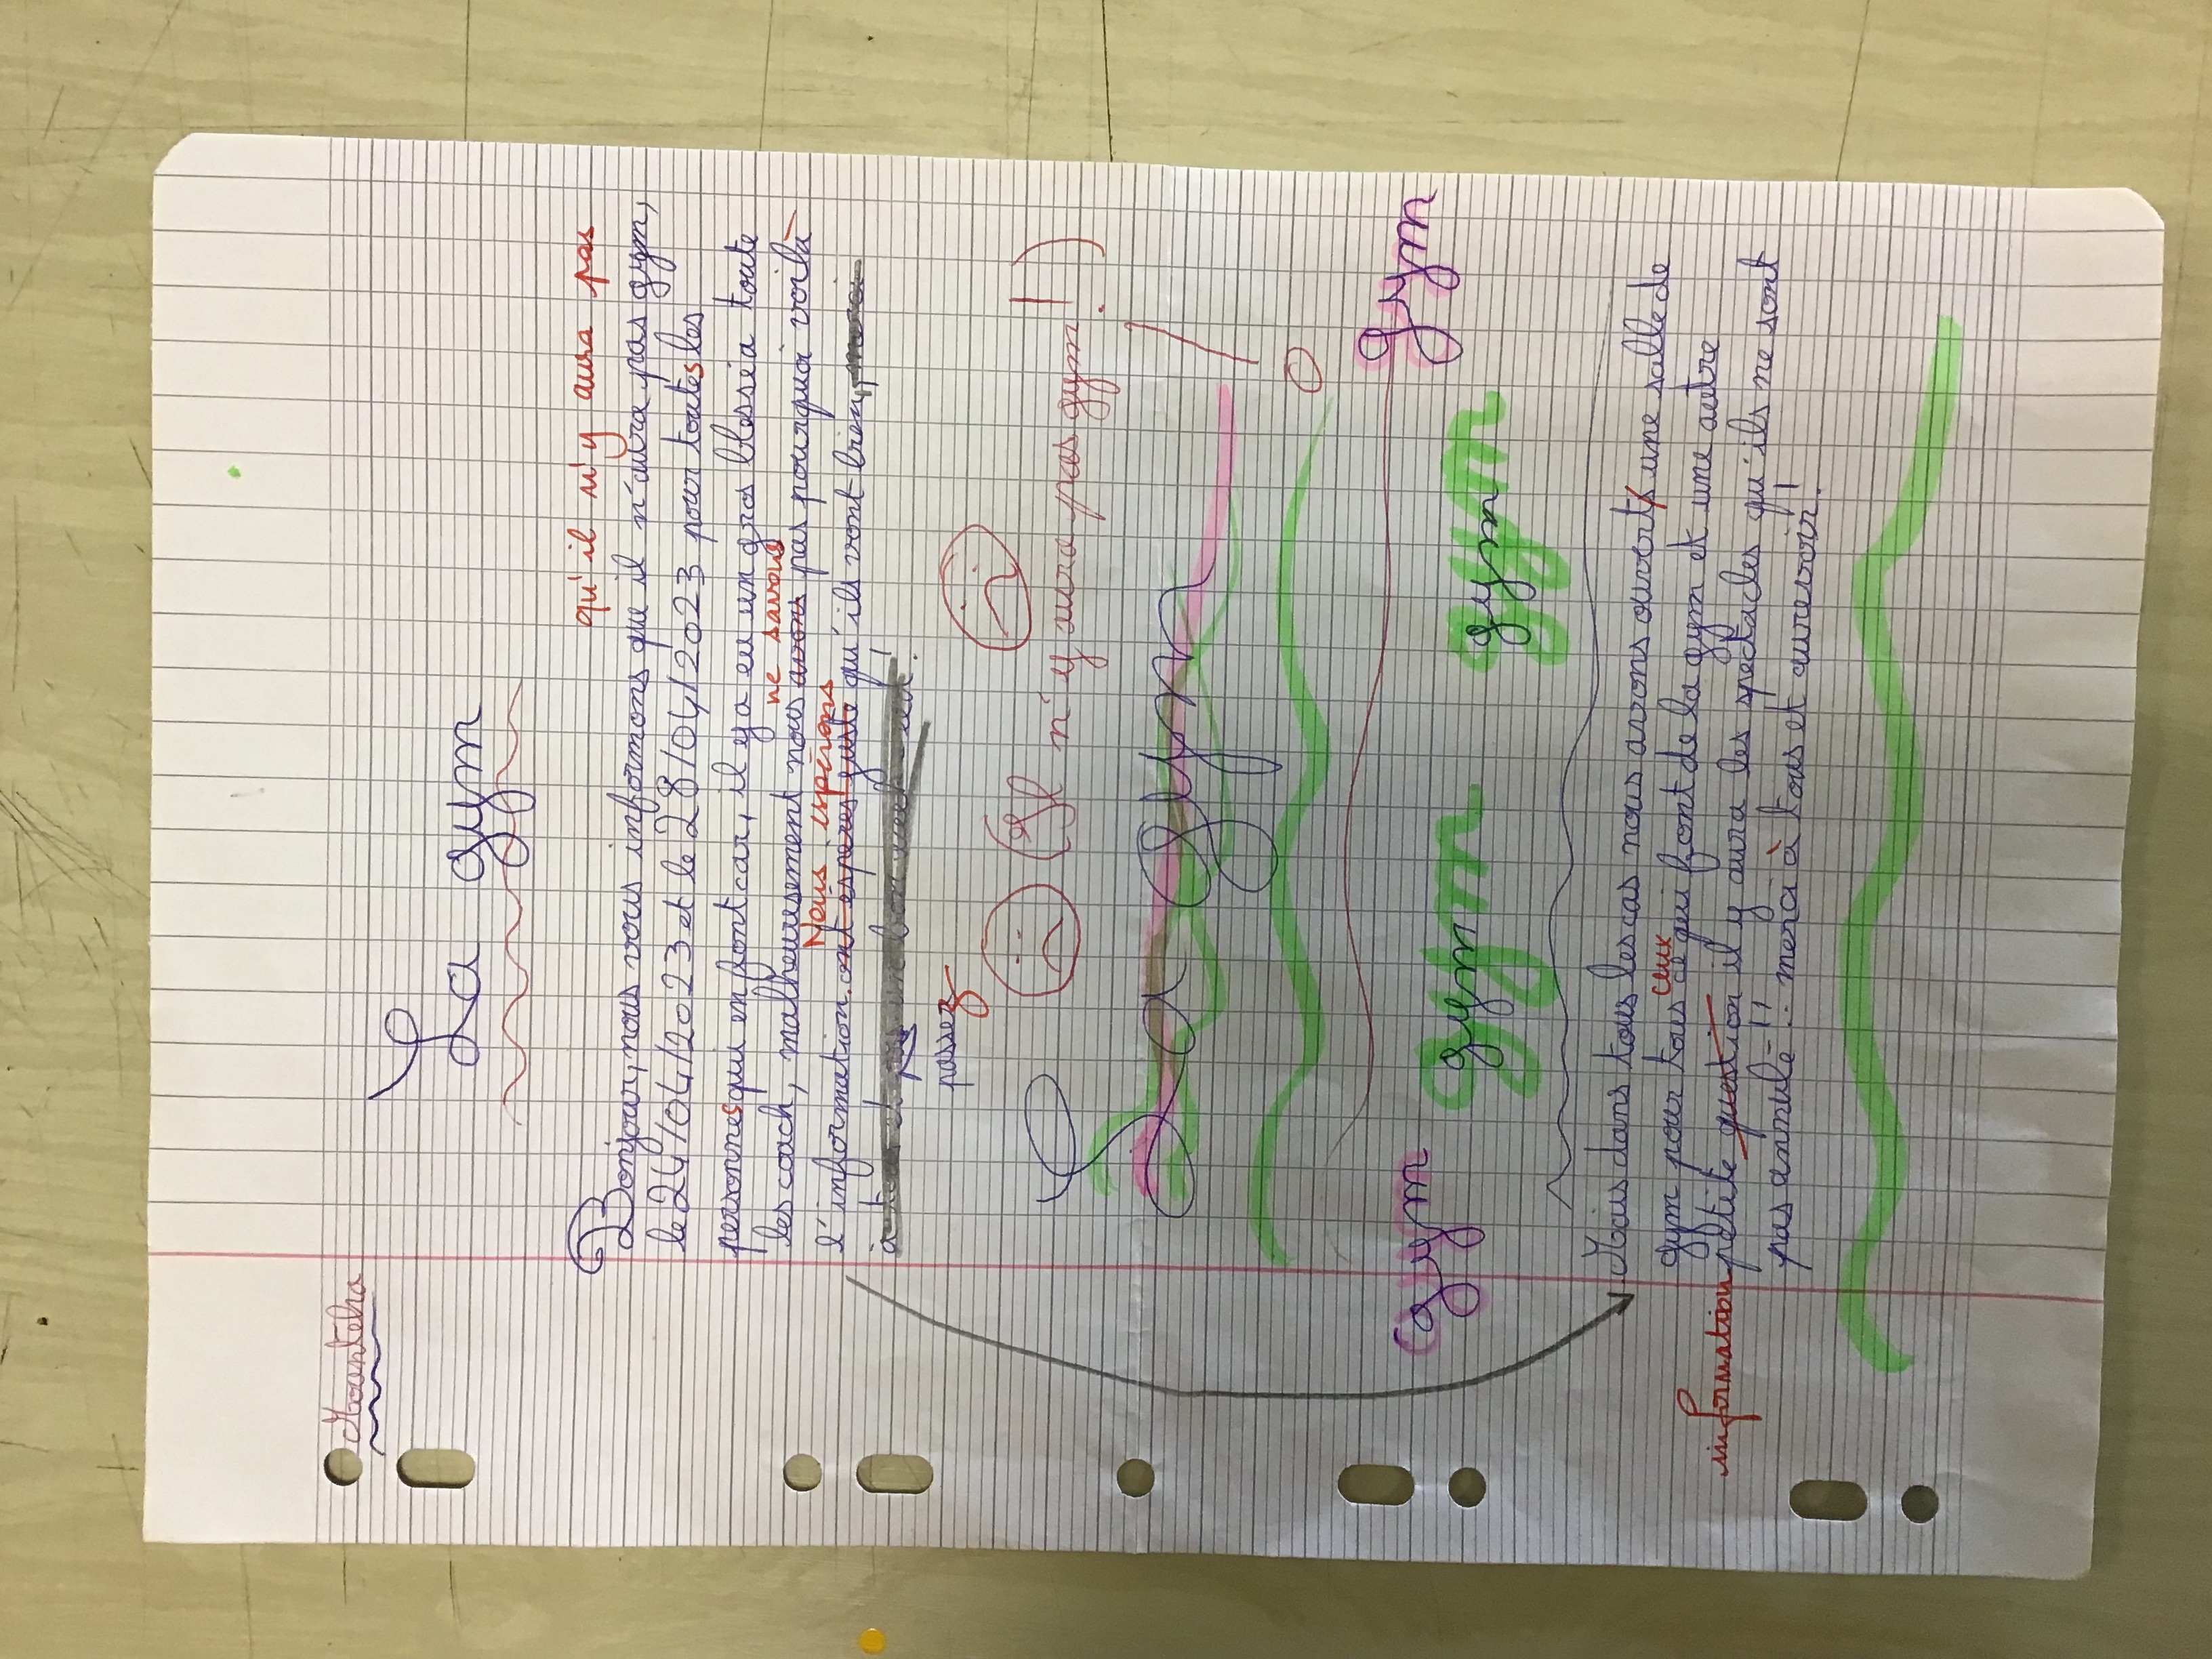 La gym
qu'il n'y aura pas
Bonjour, nous vous informons que il n'aura pas gym,
le 24/04/2023 et le 28/04/2023 pour toutes les
personnes qui en font car, il y a eu un gros blessé a toute
ne savons
les coach, malheureusement nous avons pas pourquoi voilà
Nous espérons
l'information. ont esperes juste qu'ils vont bien,
passez
(Il n'y aura pas gym !)
La gym !
gym gym gym gym
Mais dans tous les cas nous avons ouverts une salle de
ceux
gym pour tous ce qui font de la gym et une autre
information petite question il y aura les spectacles qu'ils ne sont
pas annulé !! merci à tous et aurevoir !